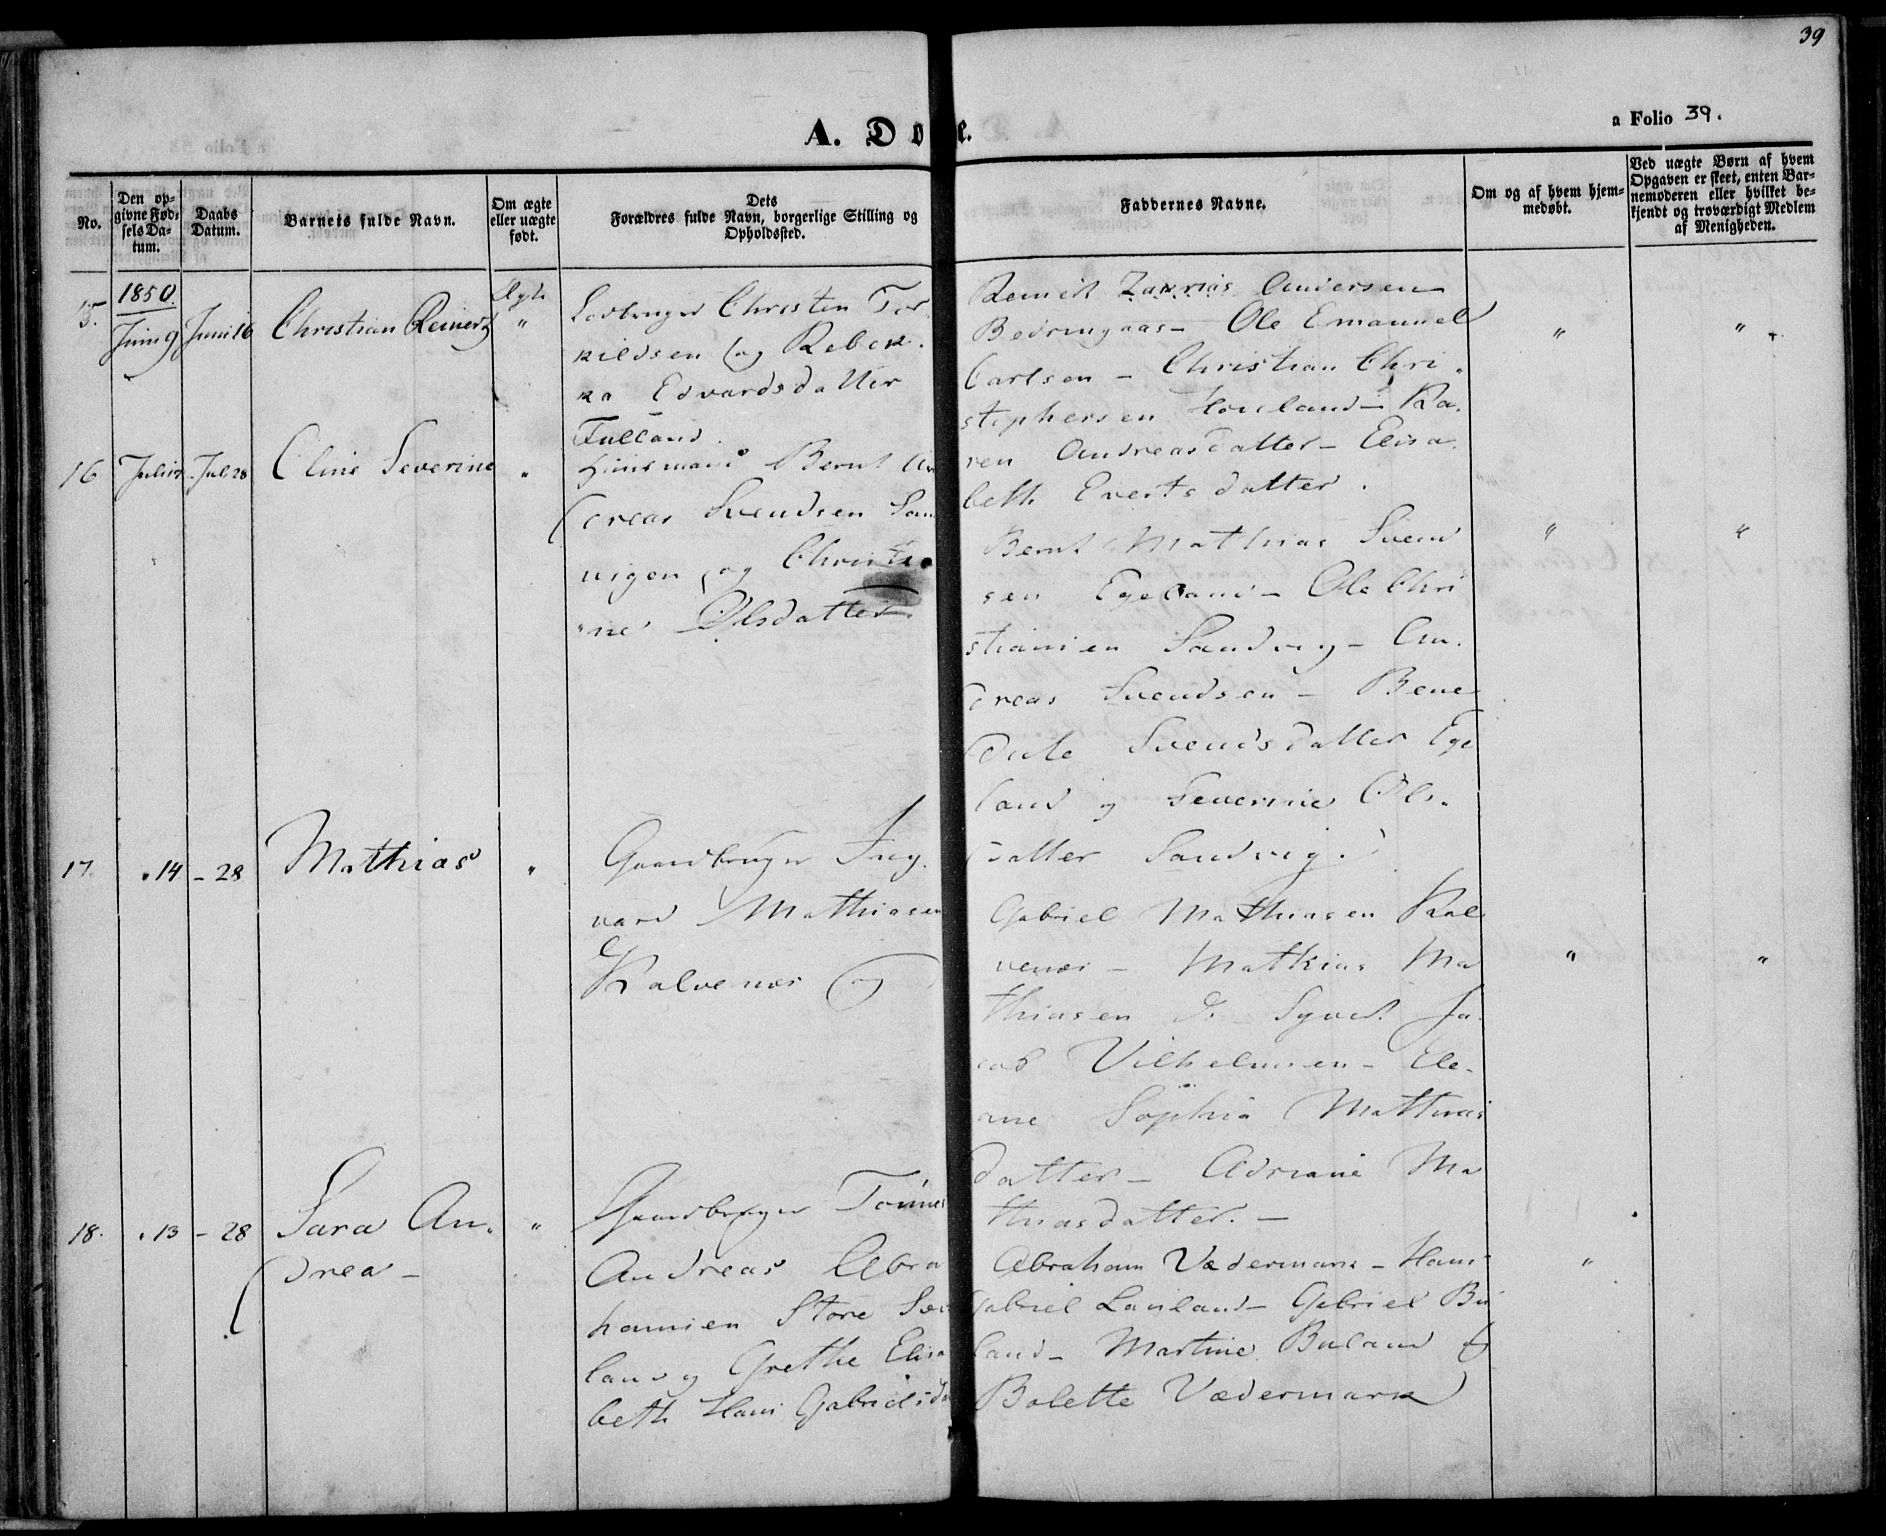 39
A. Døbte.
a Folio 39.
No.
Den op-
givne Fød-
sels Da-
tum.
Daabs
Datum.
Barnets fulde Navn.
Om ægte
eller uægte
født.
Dets
Forældres fulde Navn, borgerlige Stilling og
Opholdssted.
Faddernes Navne.
Om og af hvem hjem-
medøbt.
Ved uægte Børn af hvem
Opgaven er skeet, enten Bar-
nemoderen eller hvilket be-
kjendt og troværdigt Medlem
af Menigheden.
15.
1850.
Juni 9
Juni 16
Christian Reinert
Ægte
"
Christen Tor
kildsen og Rebek-
ka Edvardsdatter
Andersen
Ole Emanuel
Carlsen – Christian Chri-
stophersen Ka-
ren Andreasdatter – Elisa-
beth Evertsdatter.
"
"
16
Juli
Juli 28
Oline Severine
"
Huusmand Bernt An
dreas Svendsen San
vigen og Christi
ne Olsdatter
Bernt Mathias Svend
sen Egeland – Ole Chri
stiansen Sandvig – An-
dreas Svendsen – Bene
dicte Svendsdatter Ege
land og Severine Ols-
datter Sandvig.
"
"
17.
" 14
– 28
Mathias
"
Gaardbruger Ing-
vard Mathiasen
Kalvenes og
Gabriel Mathiasen Kal
venes – Mathias Ma
thiasen Ja-
cob Vilhelmsen – Ele-
ane Sophia Mathias
datter – Adriane Ma
thiasdatter. –
"
"
18.
" 13
– 28
Sara An-
drea –
"
Gaardbruger Tønnes
Andreas Abra
hamsen Store
land og Grethe Elisa
beth Hans Gabriels
Abraham Vædermark – Hans
Gabriel Gabriel Bu
land – Martine Buland &
Bolette Vædermark
"